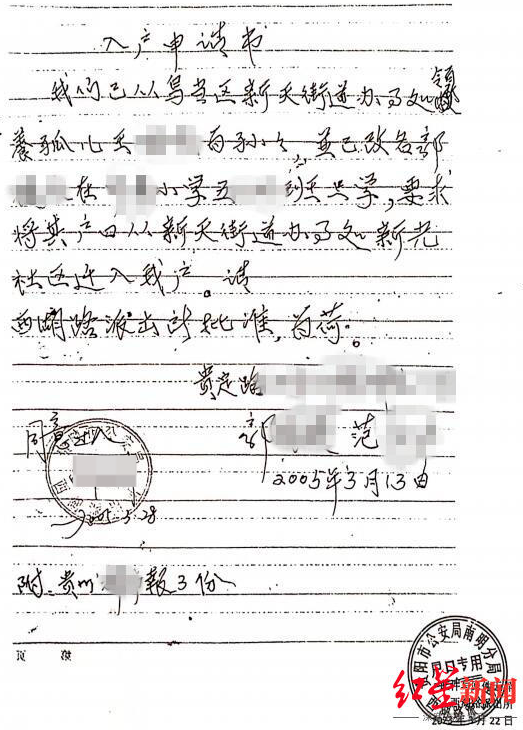 入户申请书
我们已从乌当区新天街道办事处领
养孤儿王 为孙女,并已改名郭
在 小学五 班上学,要求
将其户口从新天街道办事处新光
社区迁入我户。请
西湖路派出所批准,为荷。
贵定路
同意迁入
郭 范
2005年3月13日
2005.3.28
附:贵州 报3份
贵阳市公安局南明分局
户口专用
红星新闻
22日